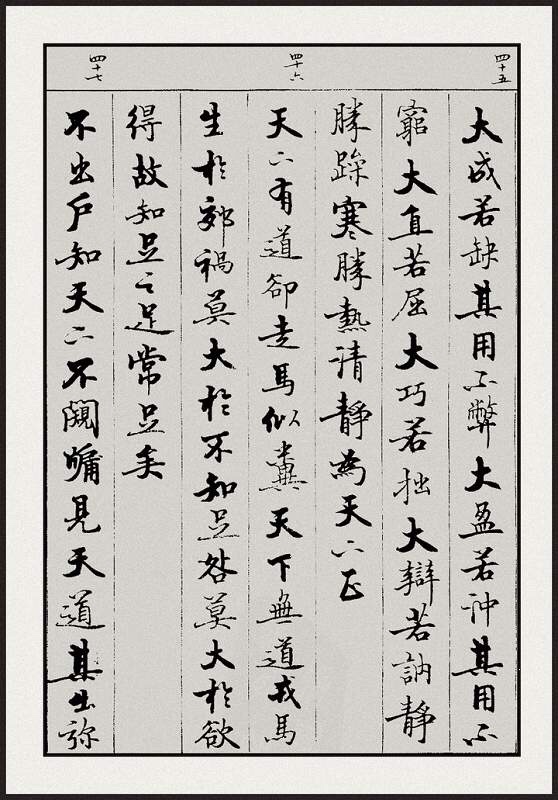 四十五
大成若缺其用不弊大盈若沖其用不
窮大直若屈大巧若拙大辯若訥靜
勝躁寒勝熱清靜為天下正
四十六
天下有道卻走馬似糞天下無道戎馬
生於郊禍莫大於不知足咎莫大於欲
得故知足之足常足矣
四十七
不出戶知天下不闚牖見天道其出彌